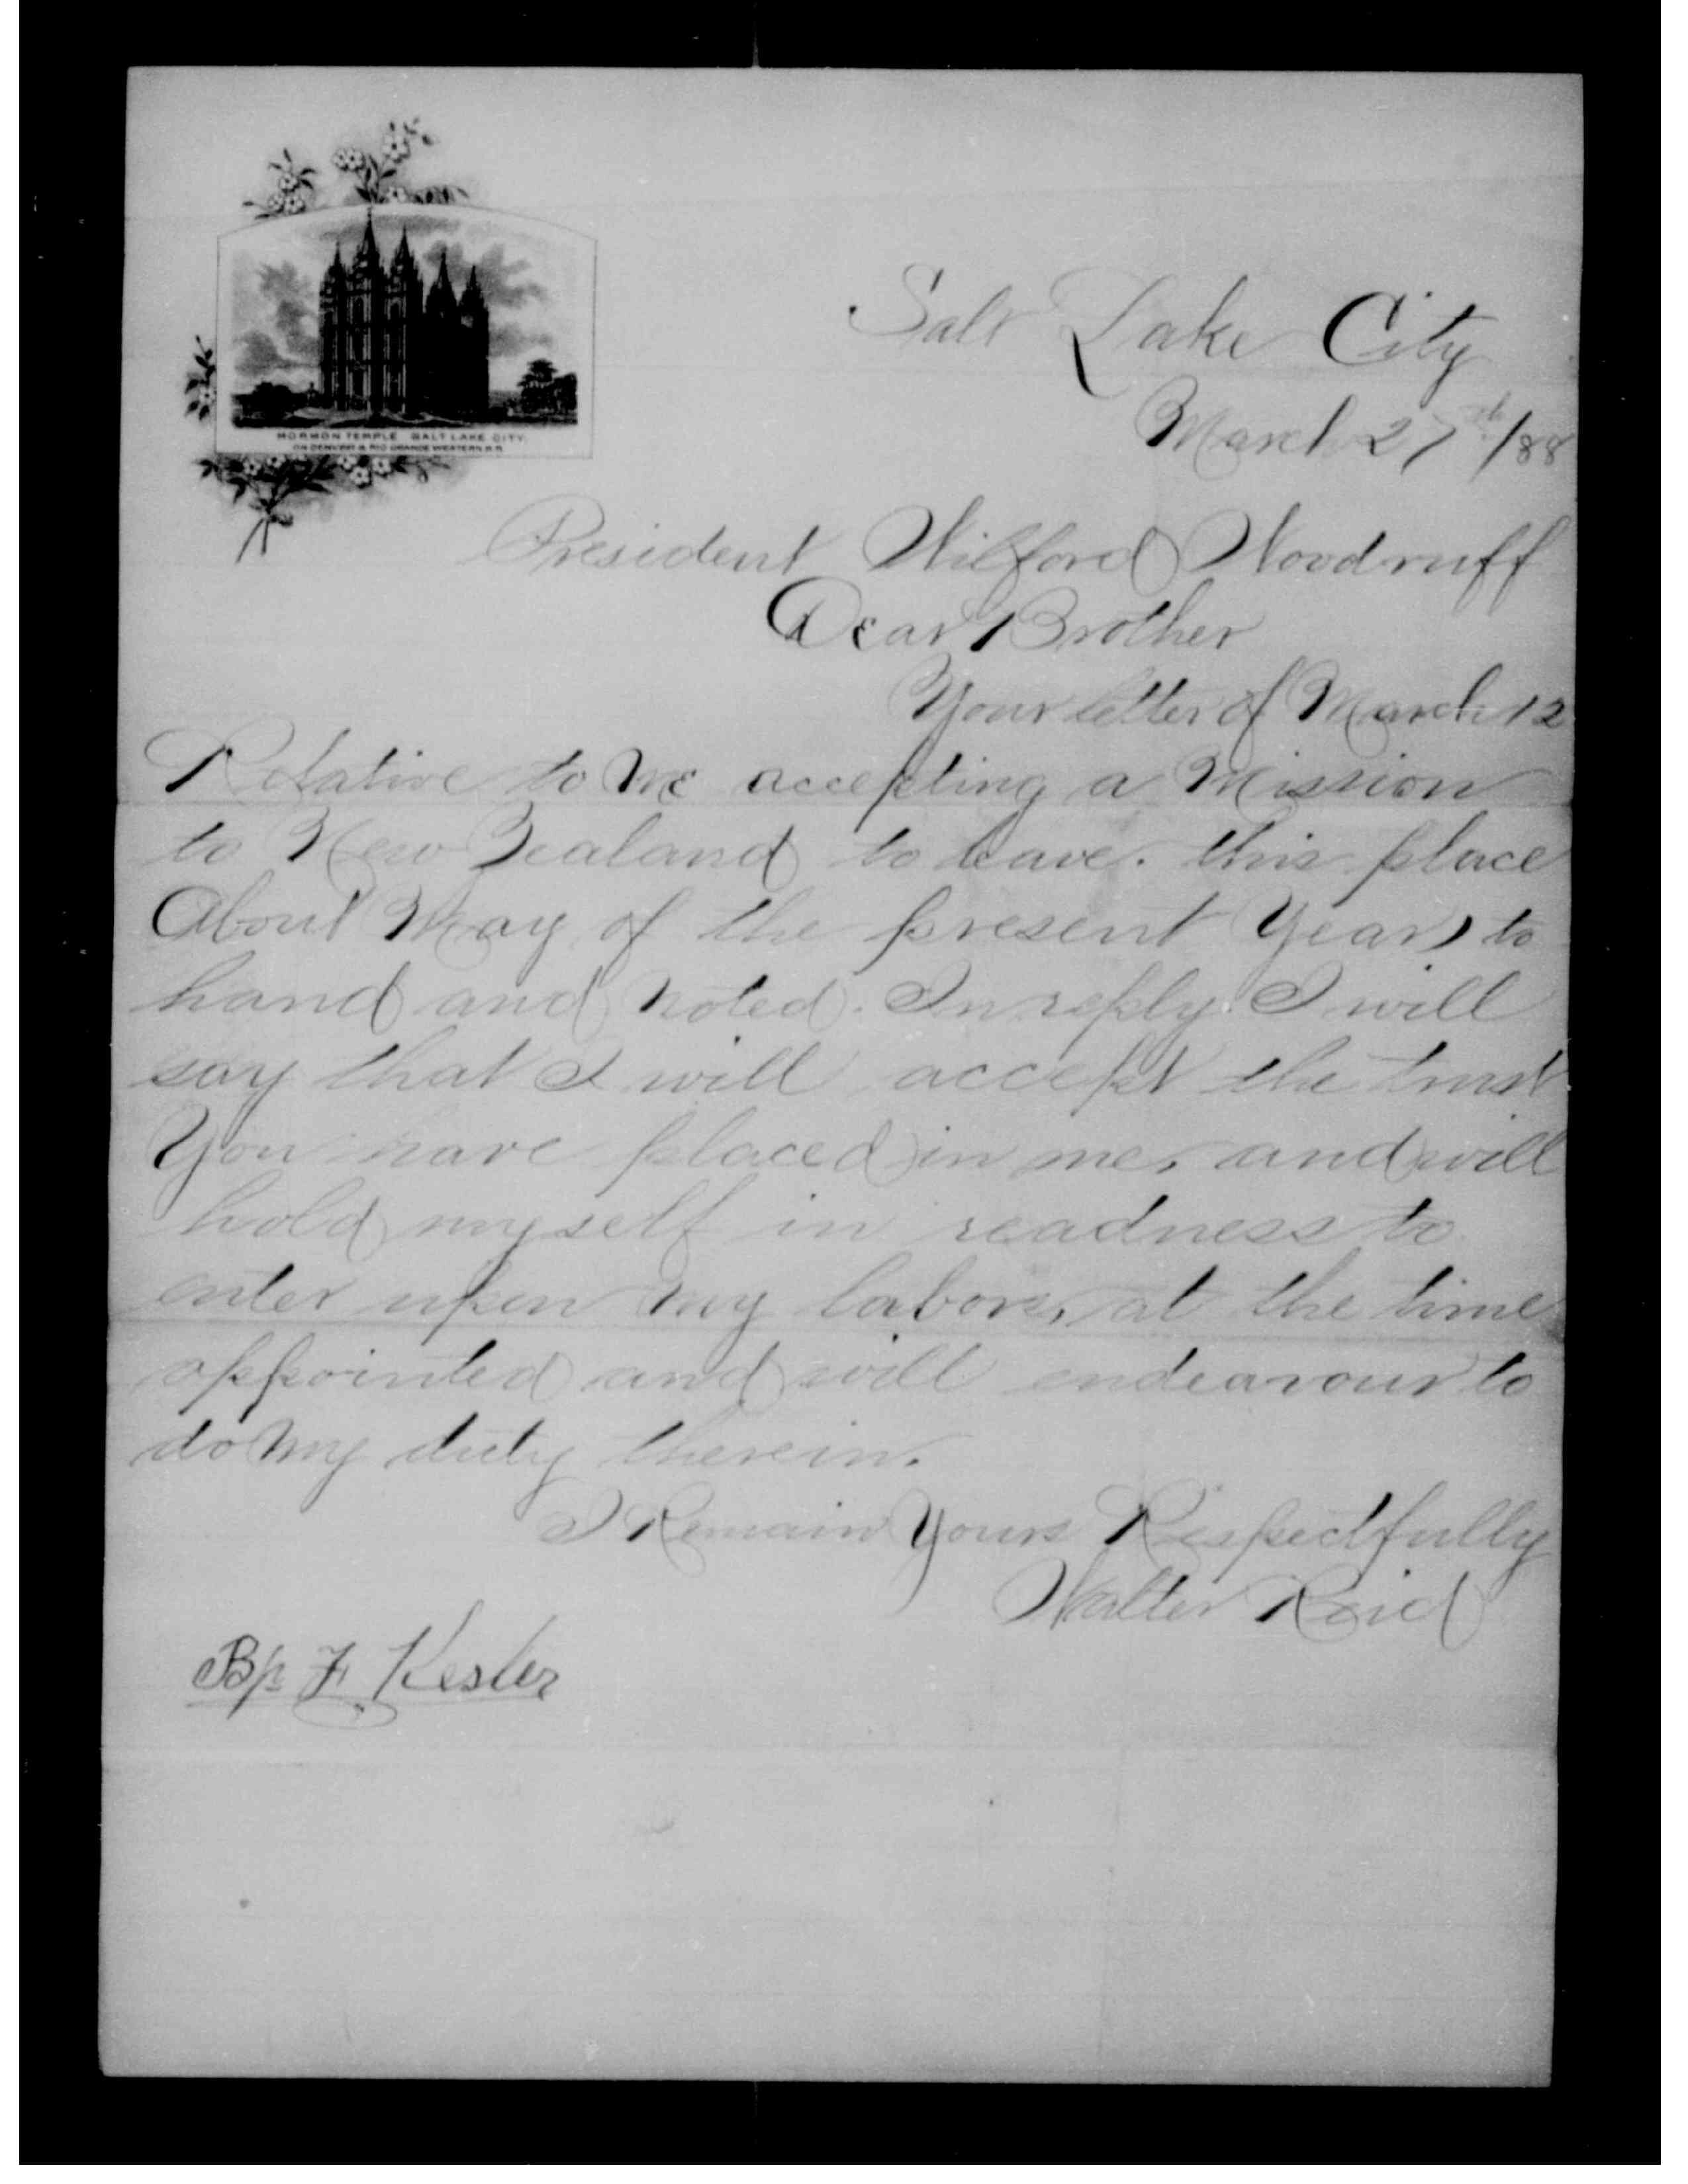 MORMON TEMPLE SALT LAKE CITY.
ON DENVER & RIO GRANDE WESTERN R.R.
Salt Lake City
March 27th /88
President Wilford Woodruff
Dear Brother
Your letter of March 12
Relative to me accepting a Mission
to New Zealand to leave. this place
About May of the present Year, to
hand and noted. In reply. I will
say that I will accept the trust
You have placed in me, and will
hold myself in readness to
enter upon my labors, at the time
appointed and will endeavour to
do my duty therein.
I Remain Yours Respectfully
Walter Reid
Bp F. Kesler